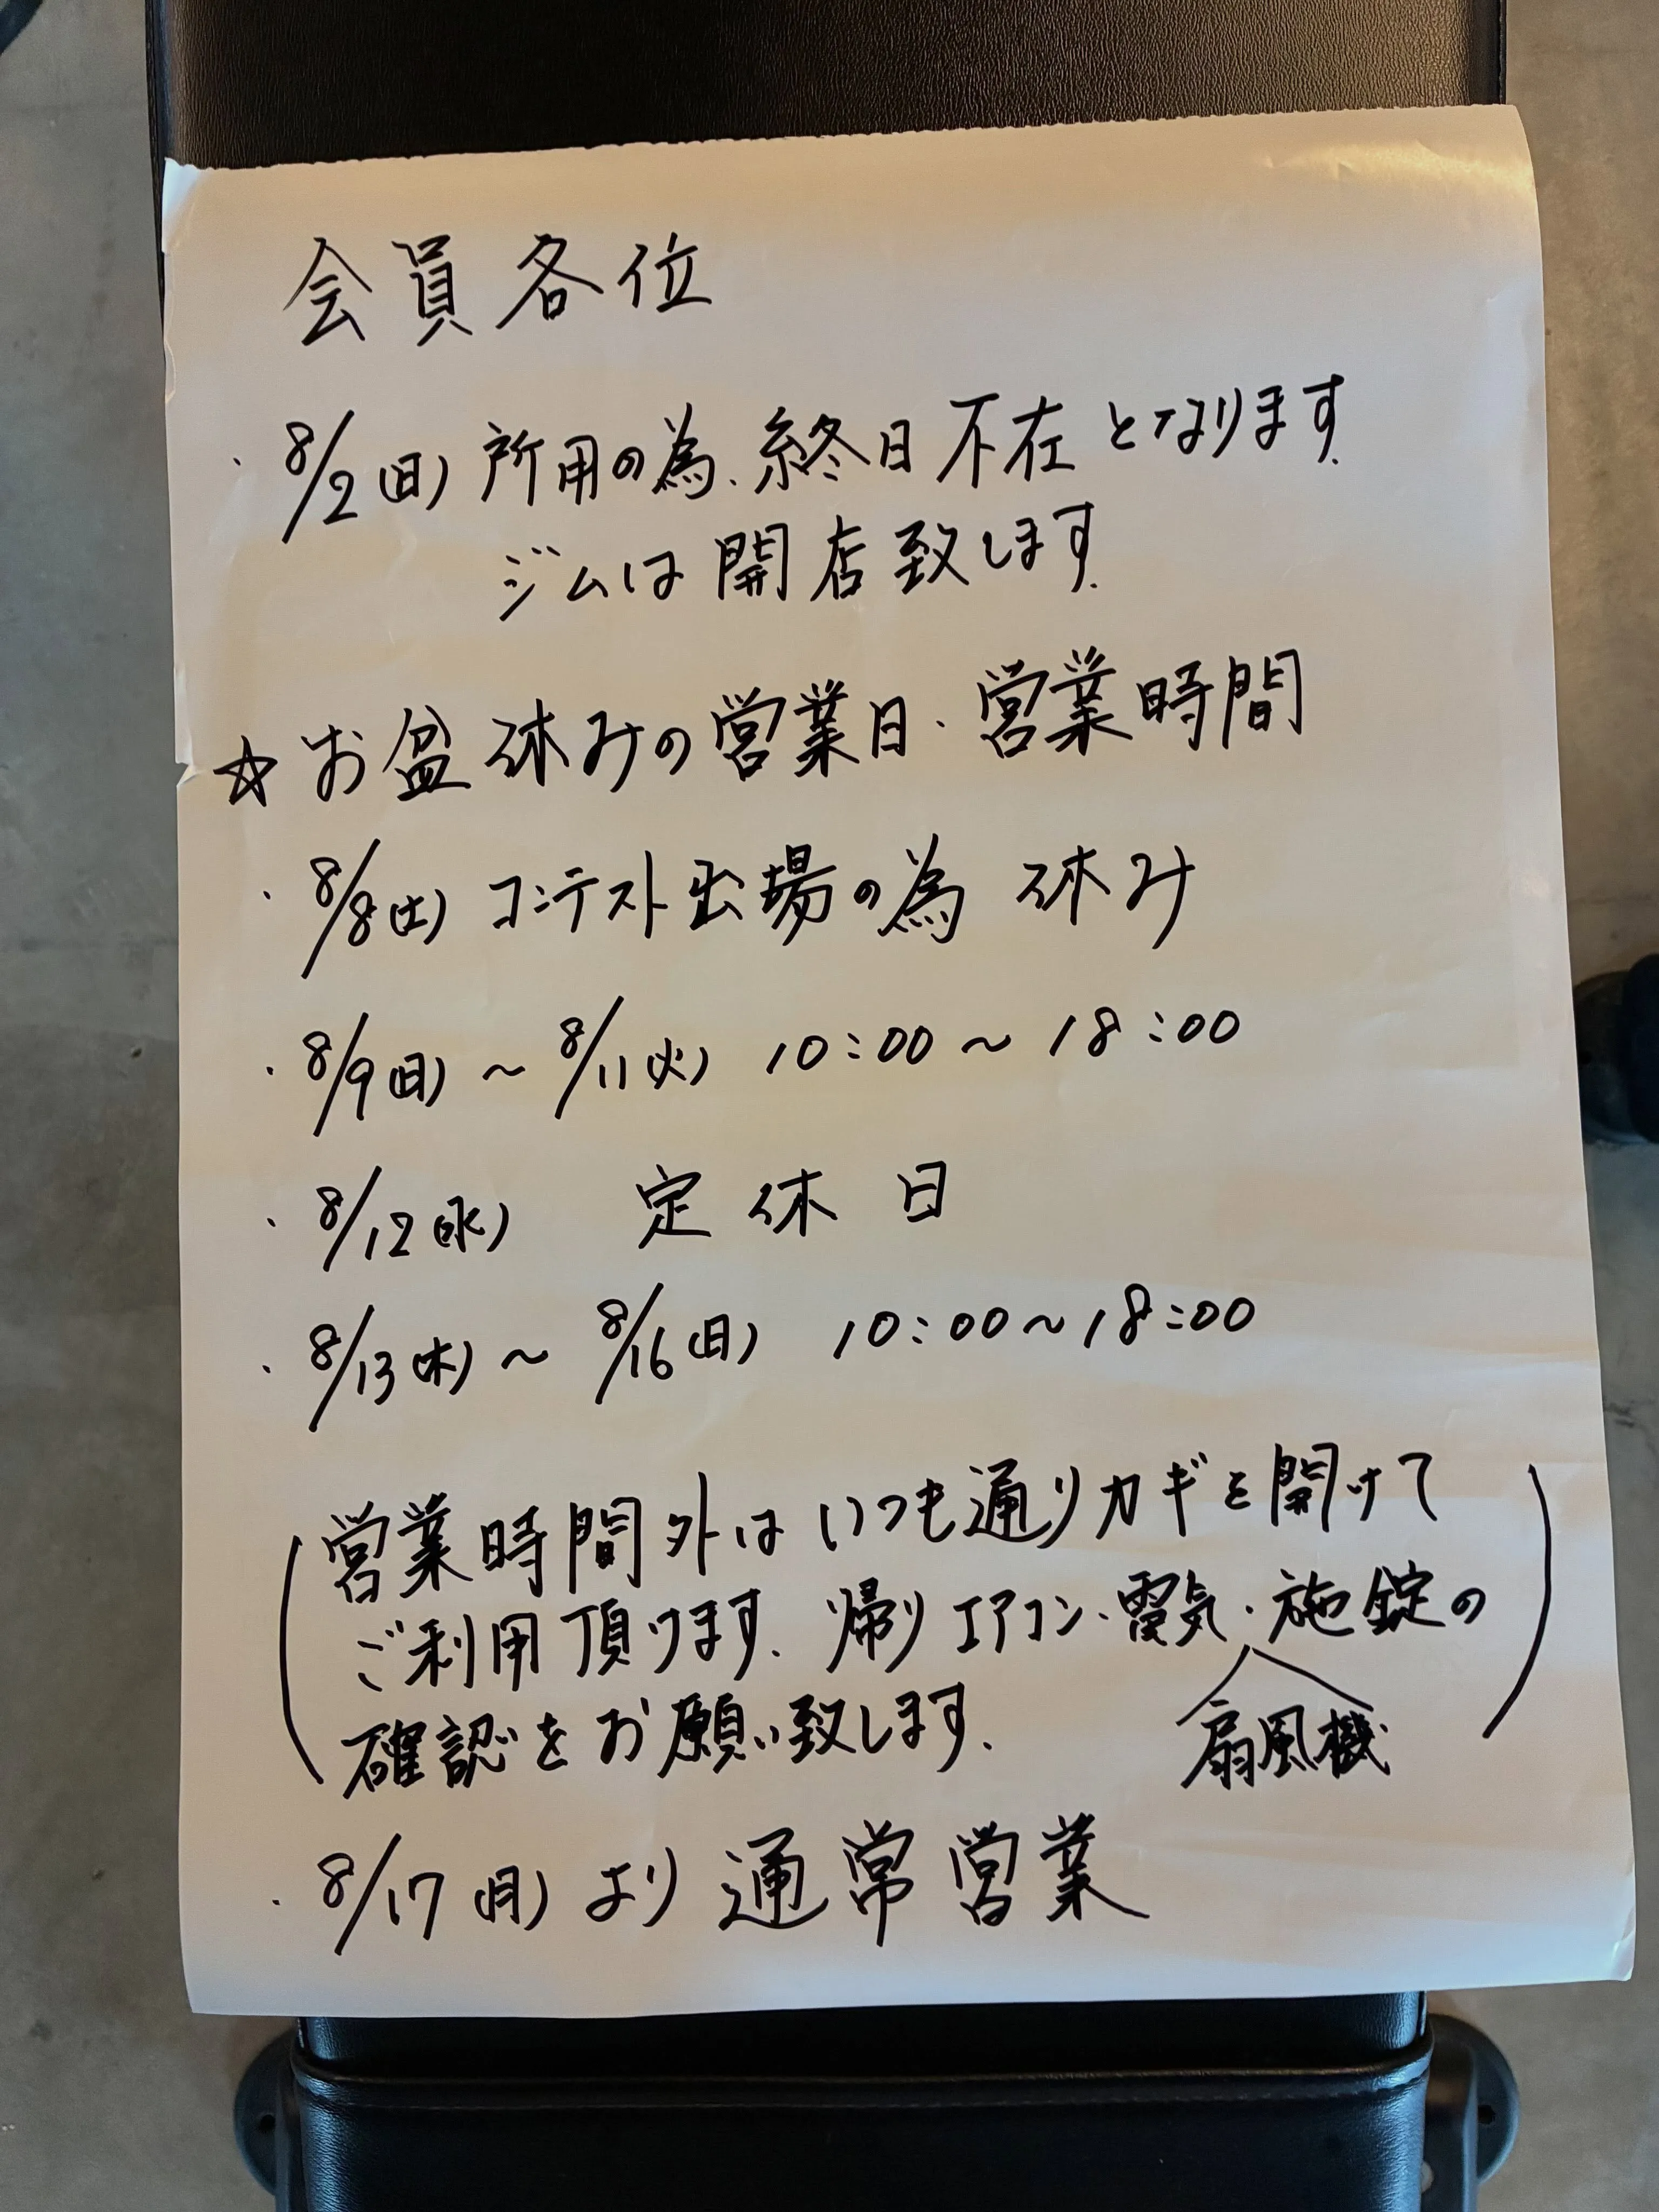 会員各位
・8/2(日) 所用の為、終日不在となります。
ジムは開店致します。
☆お盆休みの営業日・営業時間
・8/8(土) コンテスト出場の為 休み
・8/9(日) ~ 8/11(火) 10:00 ~ 18:00
・8/12(水) 定休日
・8/13(木) ~ 8/16(日) 10:00 ~ 18:00
(営業時間外はいつも通りカギを開けて
ご利用頂けます。帰りエアコン・電気・施錠の
扇風機
確認をお願い致します。)
・8/17(月)より通常営業